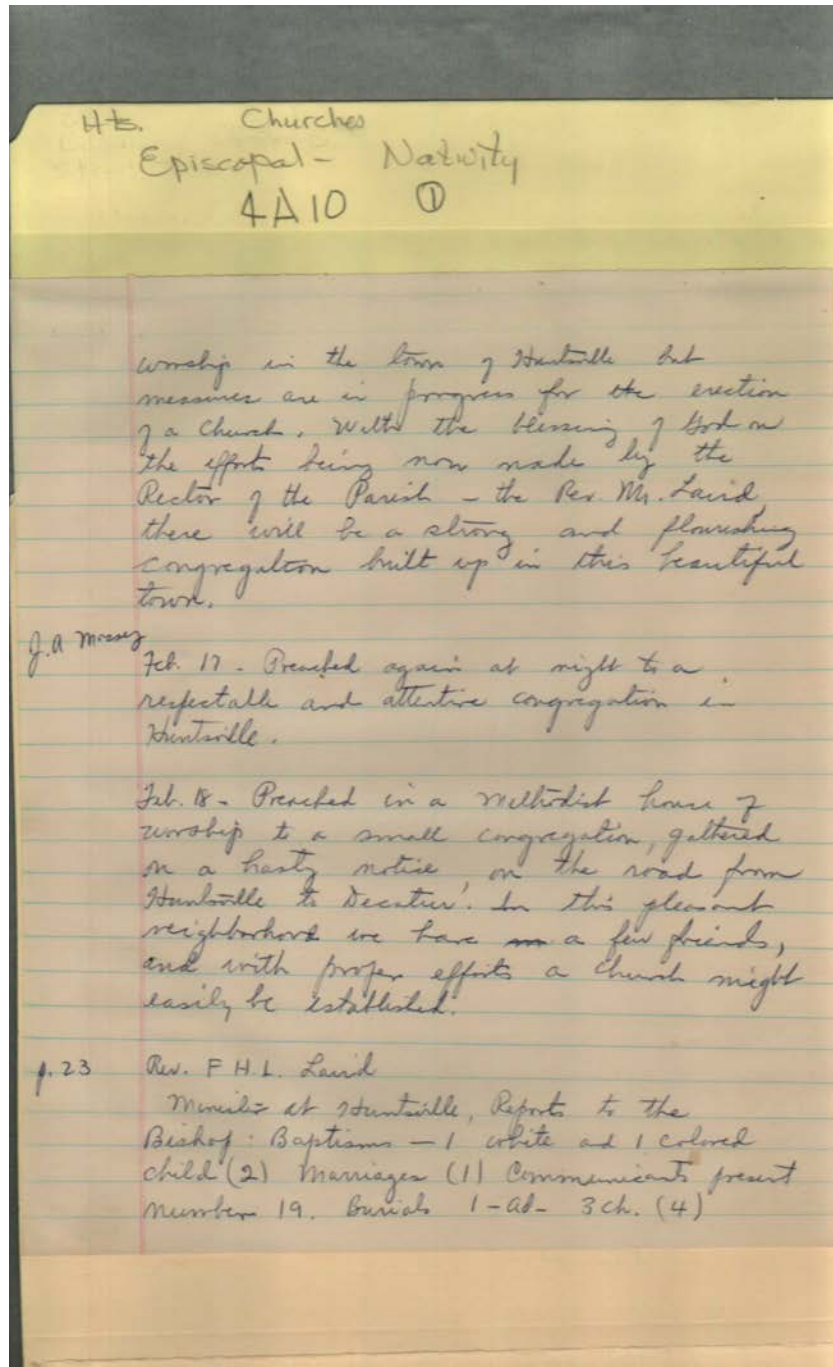 Hts. Churches
Episcopal - Nativity
4A10 ①
worship in the town of Huntsville but
measures are in progress for the erection
of a Church. With the blessing of God on
the efforts being now made by the
Rector of the Parish - the Rev. Mr. Laird,
there will be a strong and flourishing
congregation built up in this beautiful
town.
J.A Massey
Feb. 17 - Preached again at night to a
respectable and attentive congregation in
Huntsville.
Feb. 18 - Preached in a Methodist house of
worship to a small congregation, gathered
on a hasty notice, on the road from
Huntsville to Decatur. In this pleasant
neighborhood we have a few friends,
and with proper efforts a church might
easily be established.
p. 23 Rev. F H.L. Laird
Minister at Huntsville, Reports to the
Bishop: Baptisms - 1 white and 1 colored
child (2) Marriages (1) Communicants present
number 19. Burials 1 - ad - 3 ch. (4)